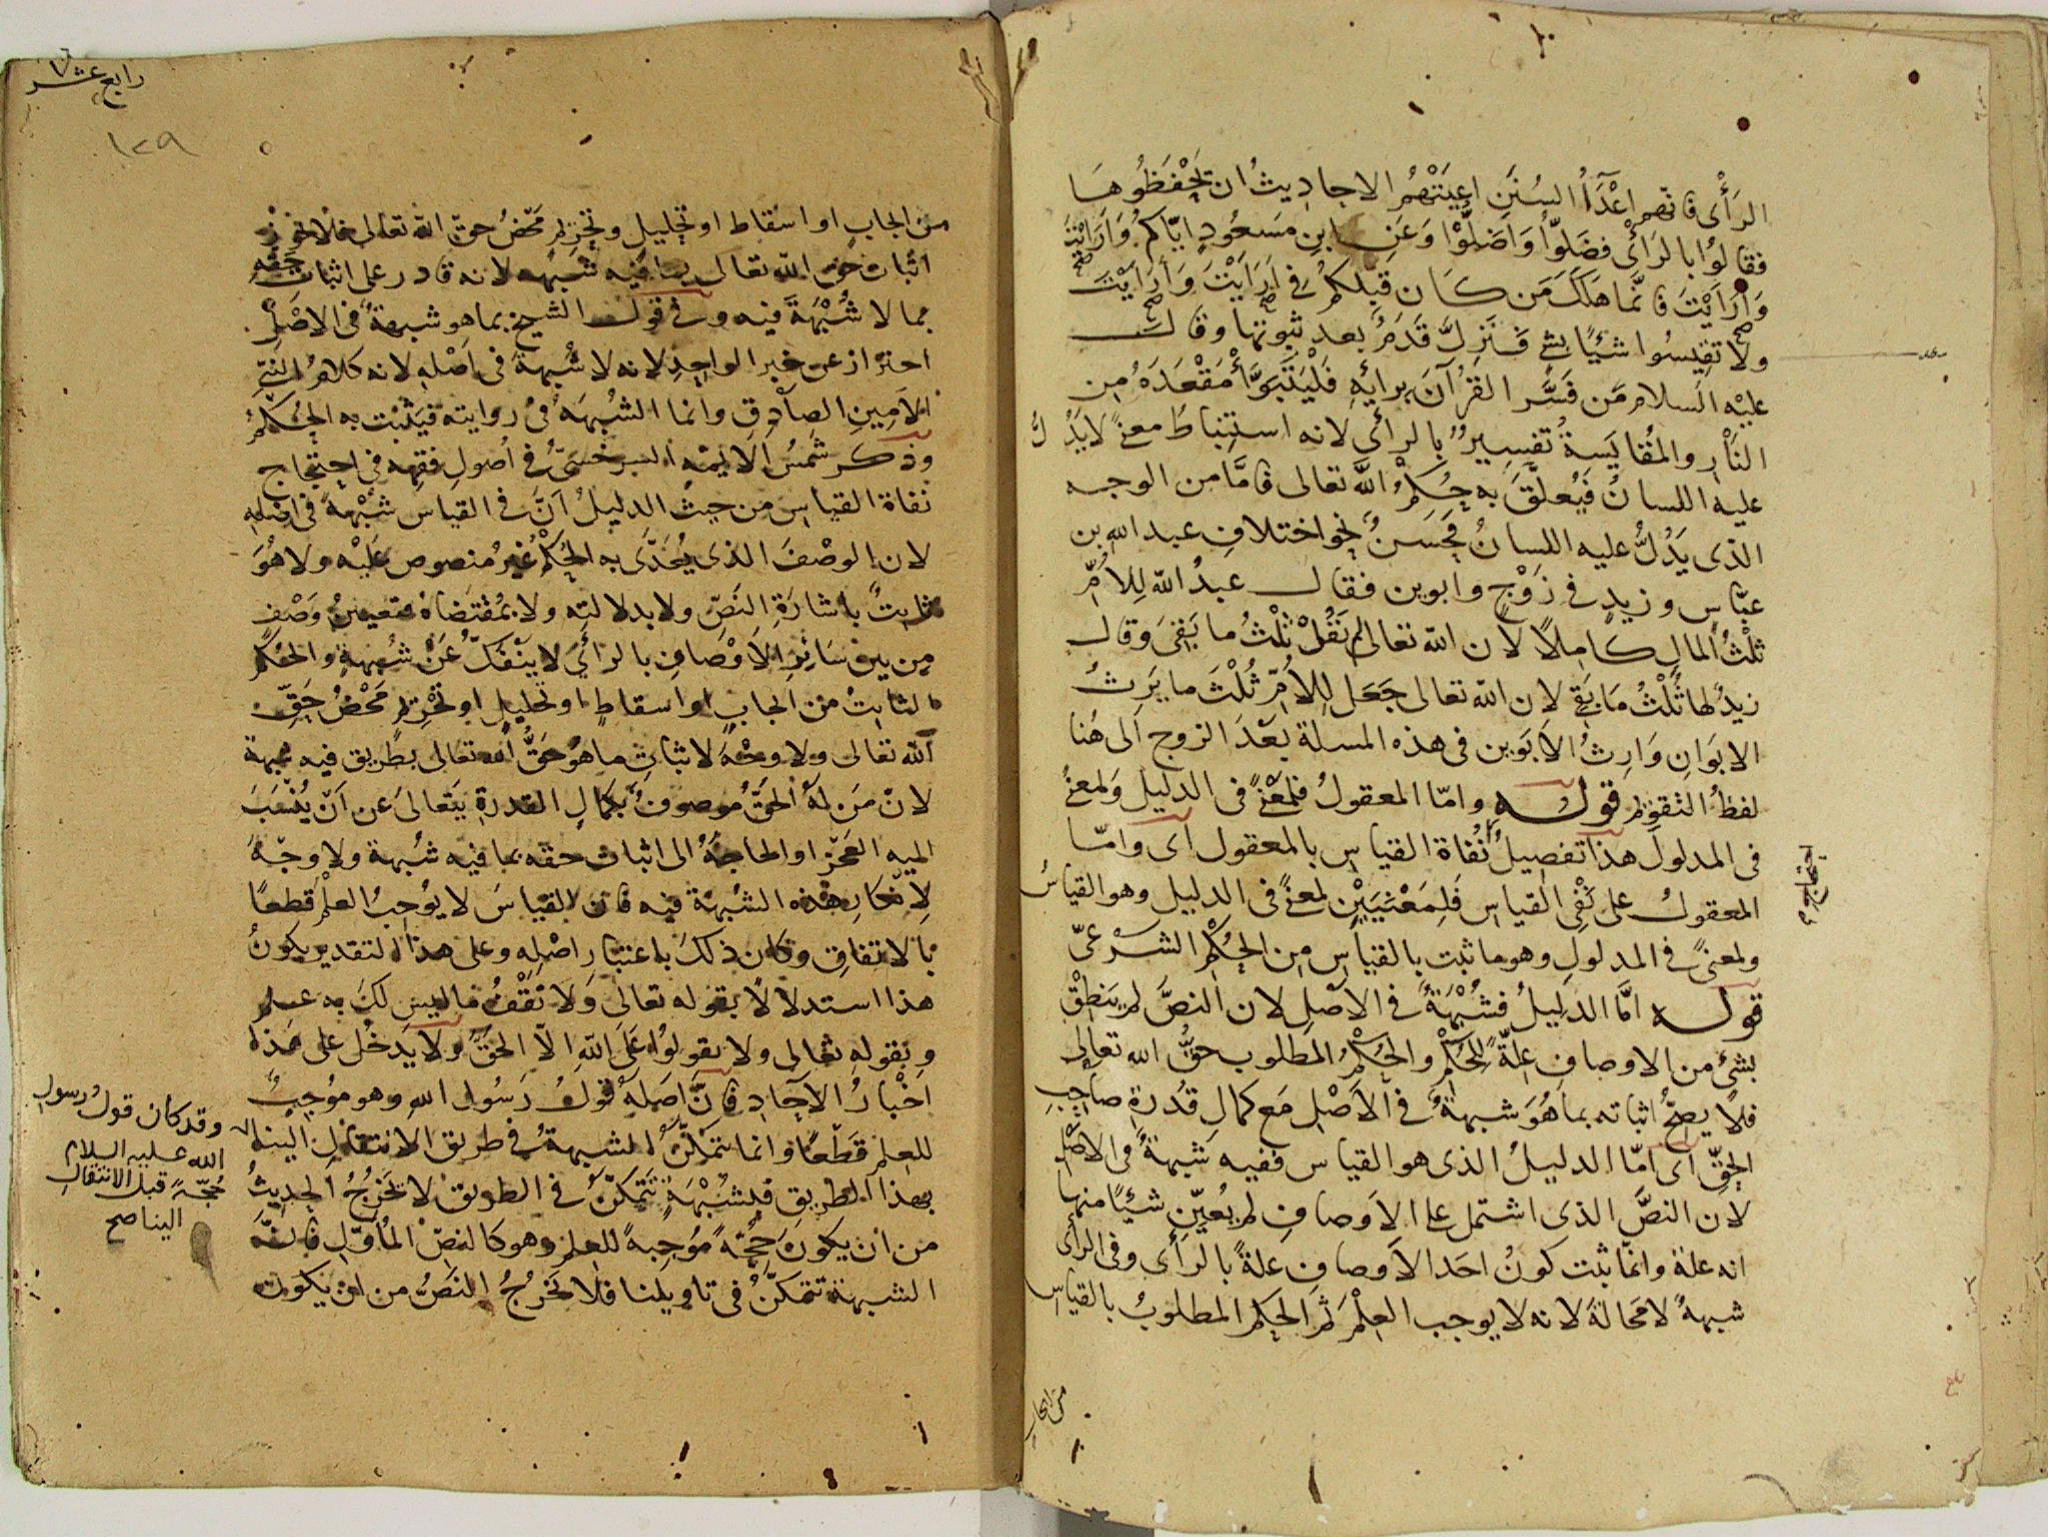 الرَأْى فانهم اعْدَآءُ السُنَنِ اعيَتْهُمُ الاحاديثُ ان تَحْفَظُوهَا
فقالوُا بالرَأْى فضَلوُّا وَاَضَلُّوْا وَعَنِ ابنِ مَسَعُودٍ ايّاكمُ وَاَرَاَيْتَ
وَاَرَاَيْتَ فانَّما هَلَكَ مَن كَانَ قبْلَكمُ فى اَرَاَيْتَ وَاَرَاَيْتَ
ولا تقِيسُوا شئيًا بشئ فَتَزِلَّ قدَمٌ بعد ثبوتها وقال
عليْه السلام مَن فَسَّر القُرآنَ برايِه فَلْيَتَبَوَّأ مَقْعَدَهُ مِن
النَارِ والمُقَايَسةُ تفسِيرٌ بالرأى لانه استِنباطُ معنًى لا يَدُلُّ
عليه اللسانُ فَيُعلَّقَ به حُكمُ الله تعالى فامَّا من الوجه
الذى يَدُلُّ عليه اللسانُ فحَسَنٌ نحو اختلافِ عبد الله بن
عبّاسٍ وزيدٍ فى زَوْجٍ وابوين فقال عبدُ الله لِلاُمِّ
ثلْثُ المالِ كاملاً لان الله تعالى لم يَقُلْ ثلْثُ ما بَقِىَ وَقال
زيدٌ لها ثُلثُ مَا بَقى لان الله تعالى جَعَل لِلاُمِّ ثُلْثَ ما يَرِثُ
الابَوَانِ وَارِثُ الاَبَوين فى هذه المسلة بَعْدَ الزوج الى هُنا
لفظُ التقويم قوله وامّا المعقولُ فلِمَعْنًى فى الدليل وَلمعنًى
فى المدلول هذا تفصِيلُ نُفاة القياسِ بالمعقول اى وامّا
احتجاجهم
المعقولُ على نَفْى القياس فَلِمَعْنَيَيْنِ لمعنًى فى الدليل وهو القياسُ
ولمعنًى فى المدلولِ وهو ما ثبت بالقياسِ مِن الحُكْمِ الشَرْعىّ
قوله امَّا الدليلُ فشُبْهَةٌ فى الاَصْلِ لان النصَّ لم يَنطِقْ
بشئ من الاوصافِ علةً للحُكْم والحُكْمُ المطلوب حقُّ الله تعالى
فلا يصِحُّ اثباته بما هُوَ شبهةٌ فى الاَصْلِ مَع كمالِ قدُرةِ صاحِبِ
الحقِّ اى امّا الدليلُ الذى هو القياس ففيه شبهةٌ فى الاصْلِ
لان النصَّ الذى اشتمل على الاَوصافِ لم يُعيِّن شئيًا منها
انه علة وانّما ثبت كونُ احَد الاَوصافِ علةً بالرَأى وفى الراى
شبهةٌ لا مَحَالةَ لانه لا يوجب العِلْمَ ثم الحكم المطلوبُ بالقياسِ
من ايجاب
رابع عشر
١٢٩
من ايجابٍ او اسقاط او تحليلٍ وتحريم مَحْضُ حقِّ الله تعالى فلا يجوز
اثبات حق الله تعالى بما فيه شبهه لانه قادر على اثبات حَقِّه
بما لا شُبْهَةَ فيه وفى قول الشيخ بما هو شبهةٌ فى الاصْلِ
احتراز عن خبر الواحِدِ لانه لا شُبهةَ فى اَصْلهِ لانه كلامُ النبِّى
الاَمِينِ الصادِقِ وانما الشُبهَه فى روايته فيَثْبُت به الحُكمُ
وَذكر شَمْسُ الاَيمَّه السرخسىُّ فى اُصولِ فقِهه فى احتجاج
نفاة القياسِ من حيث الدليلُ اَنَّ فى القياسِ شُبْهةً فى اصْلهِ
لان الوصْفَ الذى يُعَدَّى به الحُكْمُ غيرُ منصوص عَليْه ولا هُوَ
ثابِتٌ باشارَةِ النَصِّ ولا بدلالتِه ولا بمُقتضَاهُ فتعيينُ وَصْفٍ
مِن بينِ سَائِرِ الاَوْصَافِ بالرأىِ لا يَنْفَكُّ عَنْ شُبهةٍ والحُكمُ
الثابتُ من ايجابٍ او اسقاطٍ او تحليلٍ او تحْريمٍ مَحْضُ حَقِّ
الله تعالى ولا وجْهَ لاثباتِ ما هُوَ حَقُّ الله تعالى بطريق فيه شبهة
لانّ مَن لهُ الحَقُّ موصوفٌ بكمالِ القدرةِ يَتَعالىَ عن اَنْ يُنْسَبَ
اليه العَجْزُ او الحاجَةُ الى اثبات حقه بما فيه شُبهة ولا وجْهَ
لاِنكارِ هذه الشُبهَة فيه فانّ القياسَ لا يُوجِبُ العلمَ قطعًا
بالاتفاقِ وكان ذلكَ باعتبارِ اصْلِه وعلى هذا التقدير يكونُ
هذا استدلالًا بقوله تعالى وَلا تَقْفُ ما ليس لكَ به علم
وبقوله تعالى ولا تقولوُا على الله الاّ الحَقَّ ولا يَدخُل على هَذا
اخْبارُ الاَحَادِ فانَّ اَصْلهُ قولُ رَسُول الله وهو مُوجِبٌ
للعِلم قَطْعًا وانما تتمكَّنُ الشبهةُ فى طريق الانتقالِ الينا
بهذا الطريقِ فلِشُبْهَةٍ تتَمكَّنُ فى الطريقِ لا تَخرُجُ الحَدِيثُ
من ان يكونَ حُجّةً مُوجِبةً للعِلم وهو كالنصِّ المُأَوَّلِ فانَّ
الشبهة تتمكنُ فى تاويلنا فلا تخرُجُ النَصُّ من ان يكون
وقد كان قولُ رسول
الله عليه السلام
حُجّةً قبل الانتقال
الينا صح